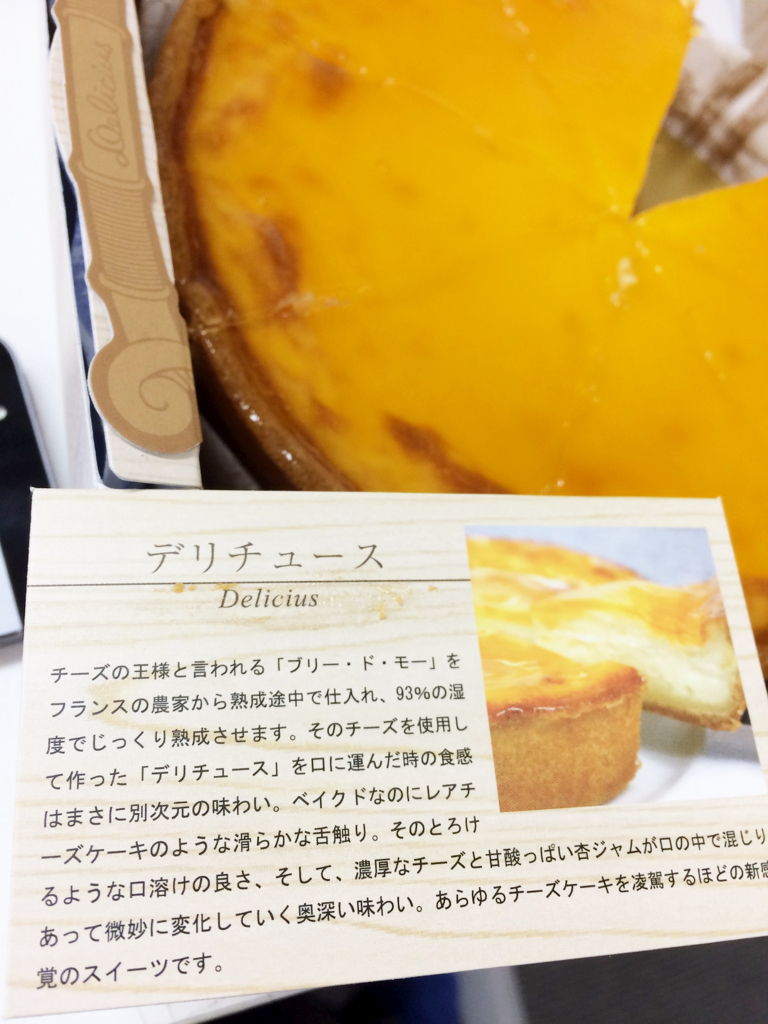 Delicius
デリチュース
Delicius
チーズの王様と言われる「ブリー・ド・モー」を
フランスの農家から熟成途中で仕入れ、93%の湿
度でじっくり熟成させます。そのチーズを使用し
て作った「デリチュース」を口に運んだ時の食感
はまさに別次元の味わい。ベイクドなのにレアチ
ーズケーキのような滑らかな舌触り。そのとろけ
るような口溶けの良さ、そして、濃厚なチーズと甘酸っぱい杏ジャムが口の中で混じり
あって微妙に変化していく奥深い味わい。あらゆるチーズケーキを凌駕するほどの新感
覚のスイーツです。